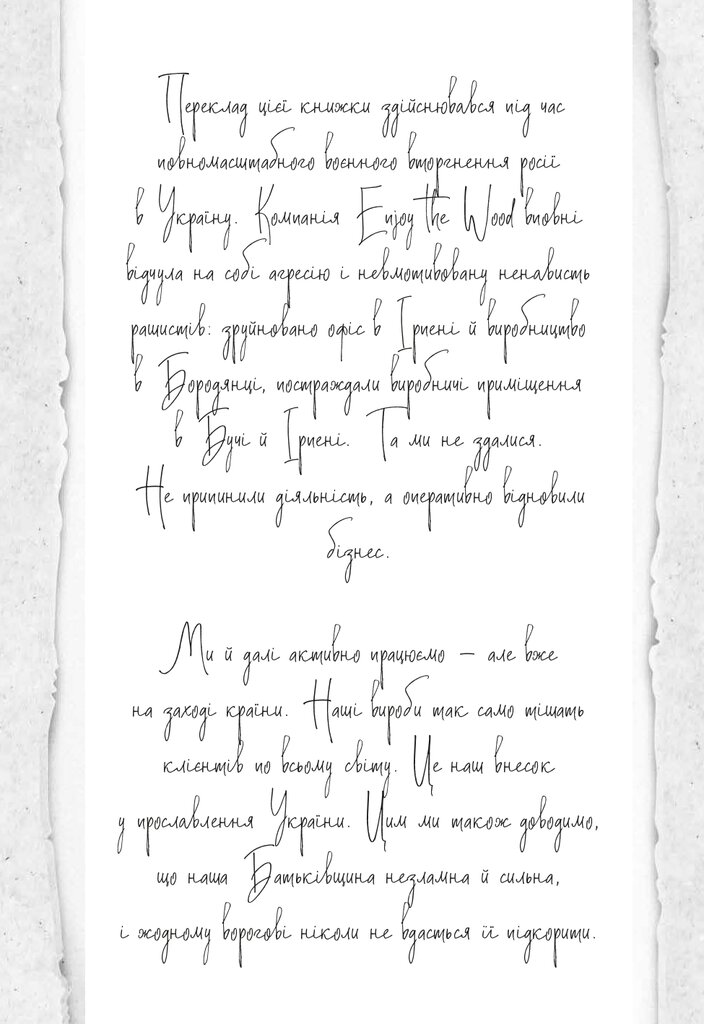 Переклад цієї книжки здійснювався під час
повномасштабного воєнного вторгнення росії
в Україну. Компанія Enjoy the Wood вповні
відчула на собі агресію і невмотивовану ненависть
рашистів: зруйновано офіс в Ірпені й виробництво
в Бородянці, постраждали виробничі приміщення
в Бучі й Ірпені. Та ми не здалися.
Не припинили діяльність, а оперативно відновили
бізнес.
Ми й далі активно працюємо – але вже
на заході країни. Наші вироби так само тішать
клієнтів по всьому світу. Це наш внесок
у прославлення України. Цим ми також доводимо,
що наша Батьківщина незламна й сильна,
і жодному ворогові ніколи не вдасться її підкорити.